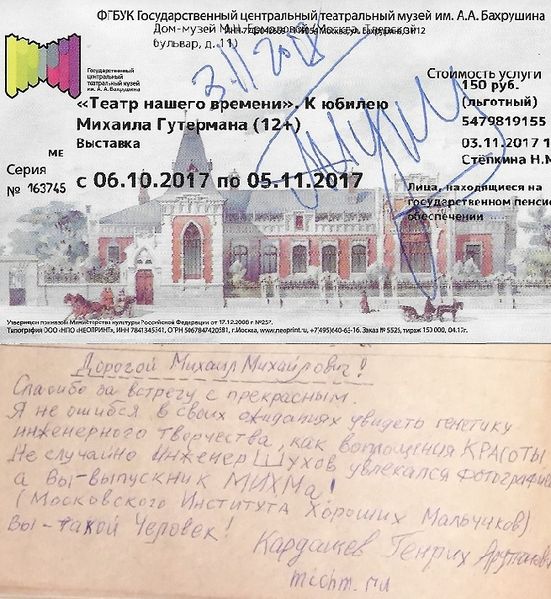 ФГБУК Государственный центральный театральный музей им. А.А. Бахрушина
Дом-музей М.Н. Ермоловой (Москва, Тверской
бульвар, д. 11)
Государственный
центральный
театральный музей
им. А. А. Бахрушина
3.11.2017
Стоимость услуги
150 руб.
(льготный)
«Театр нашего времени». К юбилею
Михаила Гутермана (12+)
5479819155
Выставка
03.11.2017 1
Степкина Н.М
МЕ
Серия
№ 163745
с 06.10.2017 по 05.11.2017
Лица, находящиеся на
государственном пенсио
обеспечении
Утвержден приказом Министерства культуры Российской Федерации от 17.12.2008 г №257.
Типография ООО «НПО «НЕОПРИНТ», ИНН 7841345341, г.Москва, www.neoprint.ru, +7(495)640-63-16. Заказ № 5525, тираж 150 000, 04.17г.
Дорогой Михаил Михайлович!
Спасибо за встречу с прекрасным.
Я не ошибся в своих ожиданиях увидеть генетику
инженерного творчества, как воплощения КРАСОТЫ
Не случайно инженер Шухов увлекался фотографи
а Вы - выпускник МИХМа!
(Московского Института Хороших Мальчиков)
Вы - такой Человек!
Кардашев Генрих Арутюнов
michm.ru